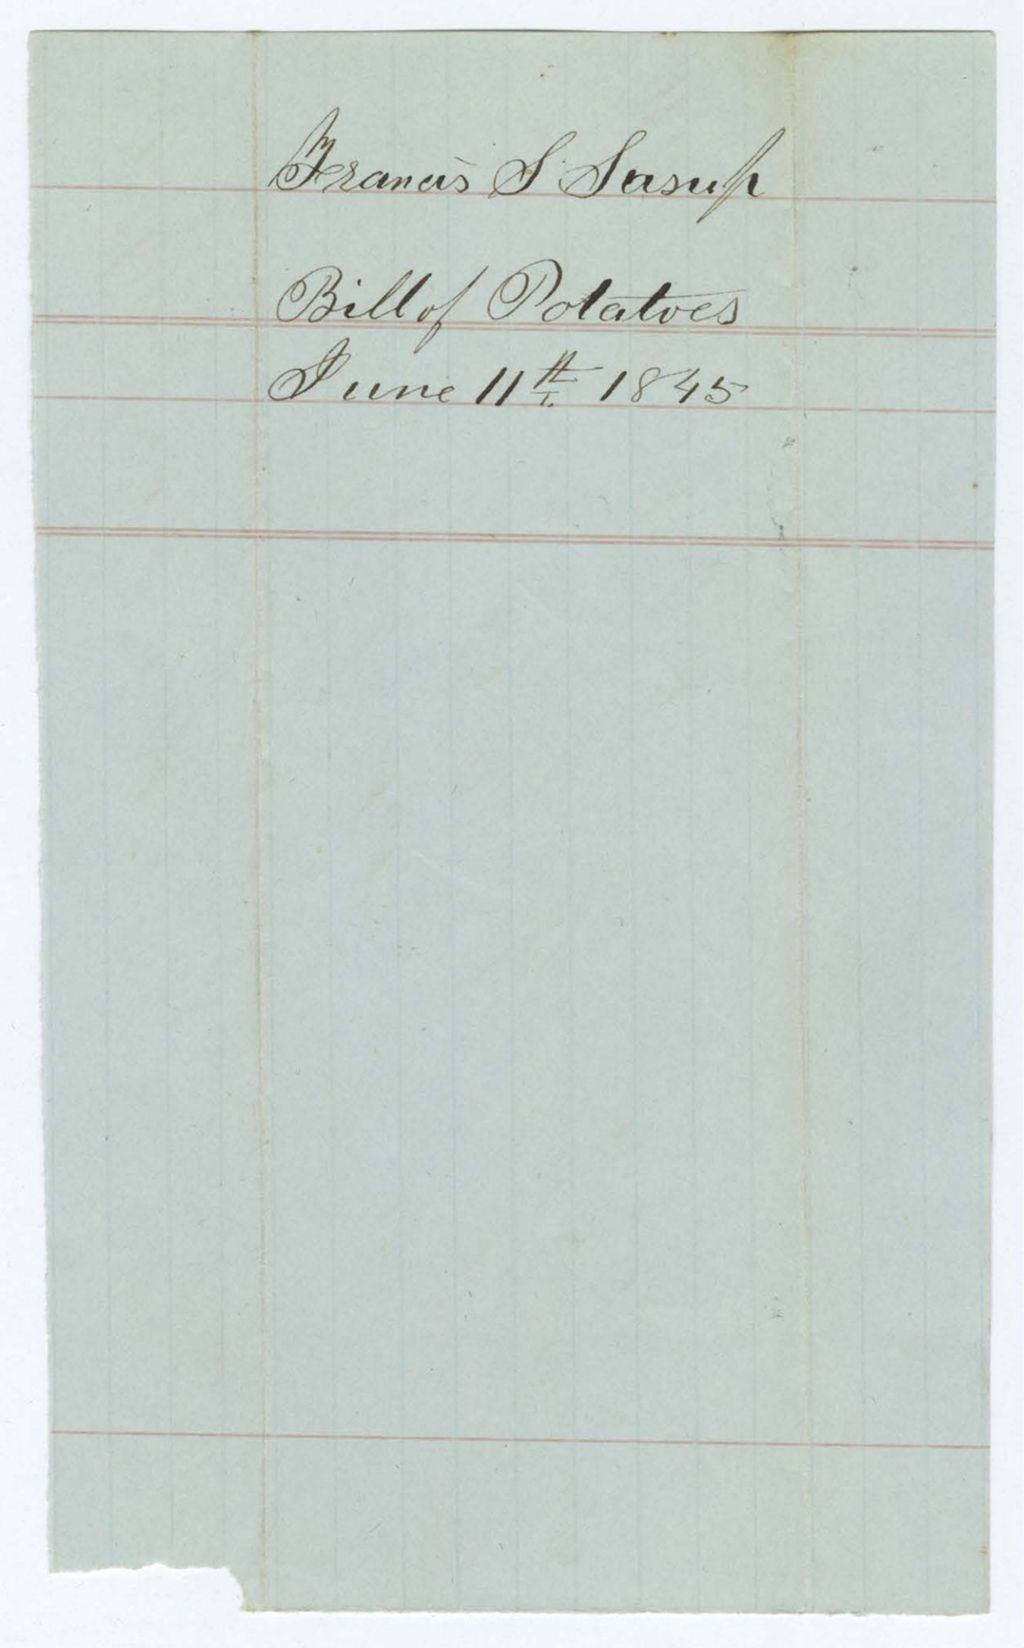 Francis S Sasup
Bill of Potatoes
June 11th 1845